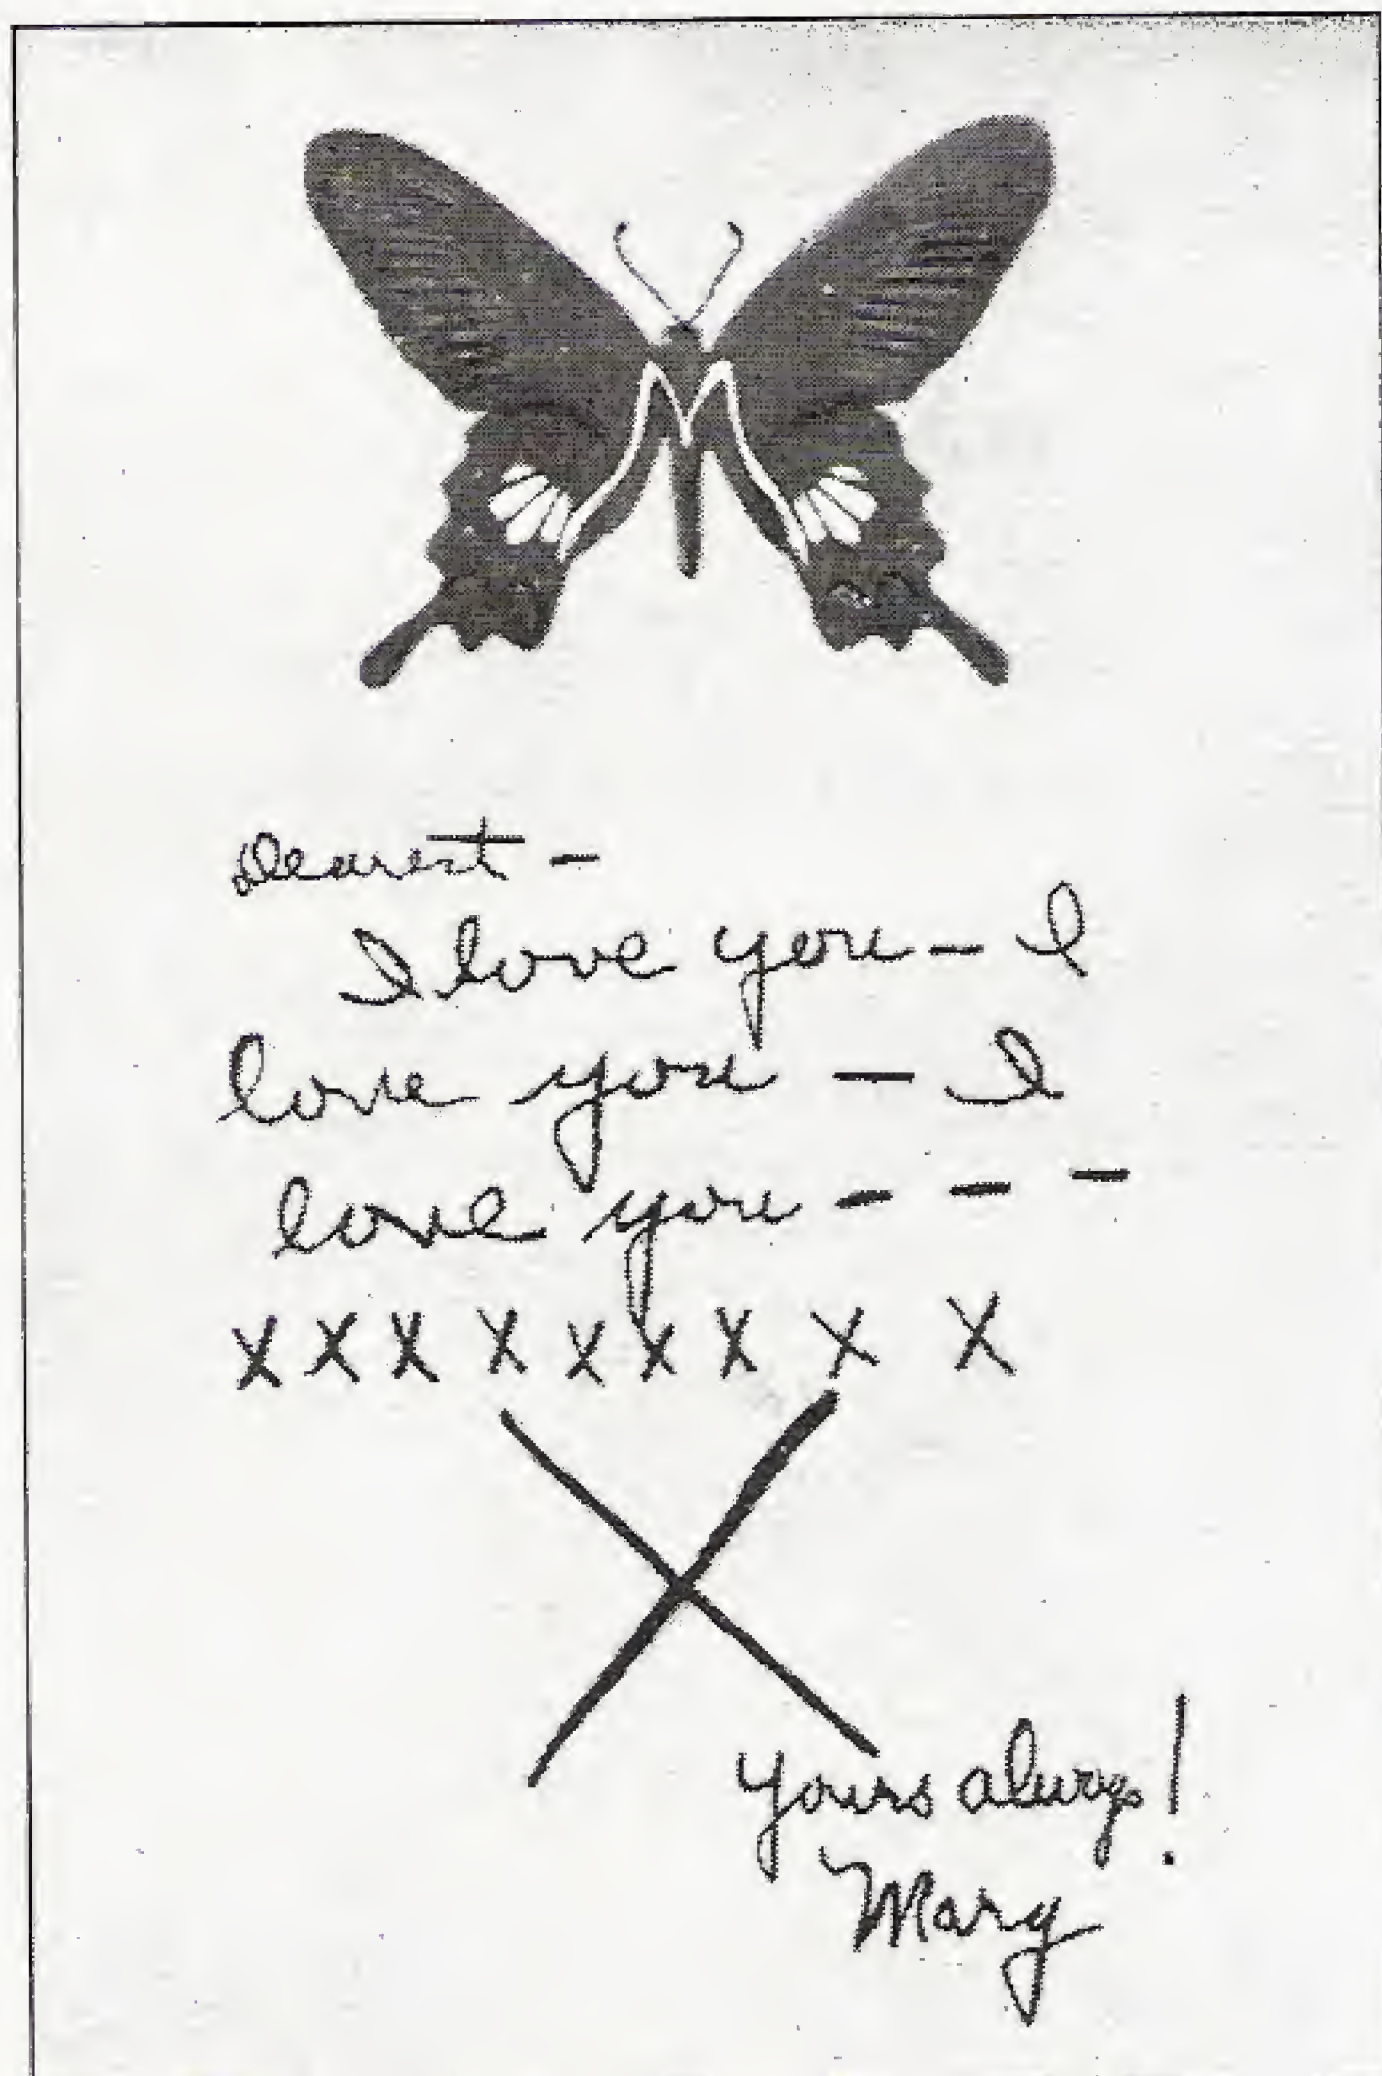 Dearest –
I love you – I
love you – I
love you – – –
X X X X X X X X X
X
yours always!
Mary